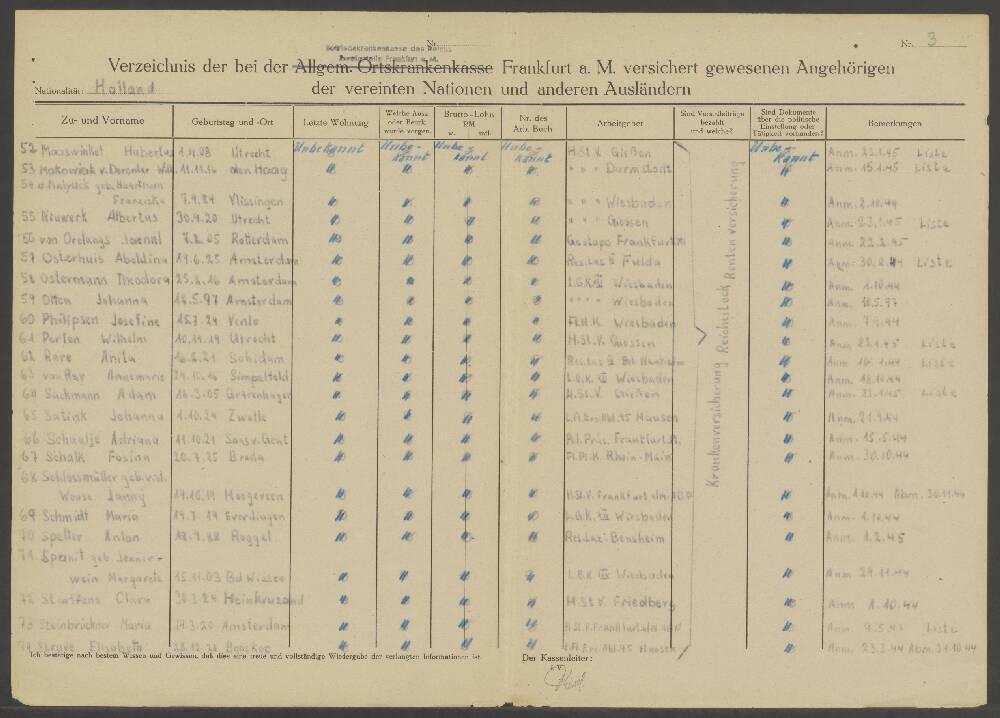 Betriebskrankenkasse des Reichs
Nr.
Zweigstelle Frankfurt a. M.
Nr. 3
Verzeichnis der bei der Allgem. Ortskrankenkasse Frankfurt a. M. versichert gewesenen Angehörigen
der vereinten Nationen und anderen Ausländern
Nationalität: Holland
Zu- und Vorname Geburtstag und -Ort Letzte Wohnung Welche Ausw. oder Berufk. wurde vorgen. Brutto-Lohn RM w. mtl. Nr. des Arb. Buch Arbeitgeber Sind Versich.beiträge bezahlt und welche? Sind Dokumente über die politische Einstellung oder Tätigkeit vorhanden? Bemerkungen
52 Maaswinkel Hubertus 1.4.08 Utrecht Unbekannt Unbe-kannt Unbe-kannt Unbe-kannt H.St.V. Gießen Unbe-kannt Anm. 23.1.45 Liste
53 11.11.16 den Haag " " " " " Darmstadt " Anm. 15.1.45 Liste
54
Franziska 7.9.24 Vlissingen " " " " " " " Wiesbaden " Anm. 2.10.44
55 Neuwerk Albertus 30.4.20 Utrecht " " " " " " " Giessen " Anm. 23.1.45 Liste
56 von 7.2.05 Rotterdam " " " " Gestapo Frankfurt/M " Anm. 22.2.45
57 Osterhuis Abeldina 19.6.25 Amsterdam " " " " Res.Laz. Fulda " Anm. 30.8.44 Liste
58 Ostermann Theodora 25.8.16 Amsterdam " " " " L.G.K. XII Wiesbaden " Anm. 1.10.44
59 Otten Johanna 18.5.97 Amsterdam " " " " " " " " Wiesbaden " Anm.
60 Philipsen Josefine 15.7.24 Venlo " " " " Wiesbaden " Anm. 7.9.44
61 Perfon Wilhelm 10.11.19 Utrecht " " " " H.St.V. Giessen " Anm. 23.1.45 Liste
62 Rare Anita 16.8.21 Schidam " " " " Res.Laz. Bd. Nauheim " Anm. 10.1.44 Liste
63 von Ray Annemarie 24.10.16 Simpelfeld " " " " L.G.K. XII Wiesbaden " Anm. 18.10.44
64 Sackmann Adam 16.3.05 Gravenhagen " " " " H.St.V. Gießen " Anm. 23.1.45 Liste
65 Satink Johanna 1.10.24 Zwolle " " " " Hausen " Anm. 21.9.44
66 Schaalje Adriana 11.10.21 Sas v. Gent " " " " Pol. Präs. Frankfurt/M. " Anm. 15.5.44
67 Schalk Fosina 20.7.25 Breda " " " " Rhein-Main " Anm. 30.10.44
68 Schlossmüller geb.
Wouse Janny 19.10.19 Hoogeveen " " " " H.St.V. Frankfurt a/M. " Anm. 1.10.44 Abm. 30.11.44
69 Schmidt Maria 19.7.19 Everdingen " " " " L.G.K. XII Wiesbaden " Anm. 1.10.44
70 Spetter Anton 18.9.88 Roggel " " " " Res.Laz. Bensheim " Anm. 1.2.45
71 Spanit geb. Jenner-
wein Margarete 15.11.03 Bd Wiessee " " " " L.G.K. XII Wiesbaden " Anm. 29.11.44
72 Steffens Clara 30.3.24 Heinkruzand " " " " H.St.V. Friedberg " Anm. 1.10.44
73 Steinbrücker Maria 14.3.20 Amsterdam " " " " H.St.V. Frankfurt a/M " Anm. 9.5.43 Liste
74 Struve Elisabeth 28.12.21 " " " " Hausen " Anm. 23.2.44 Abm. 31.10.44
Krankenversicherung Reichsstock Rentenversicherung
Ich bestätige nach bestem Wissen und Gewissen, daß dies eine treue und vollständige Wiedergabe der verlangten Informationen ist.
Der Kassenleiter: